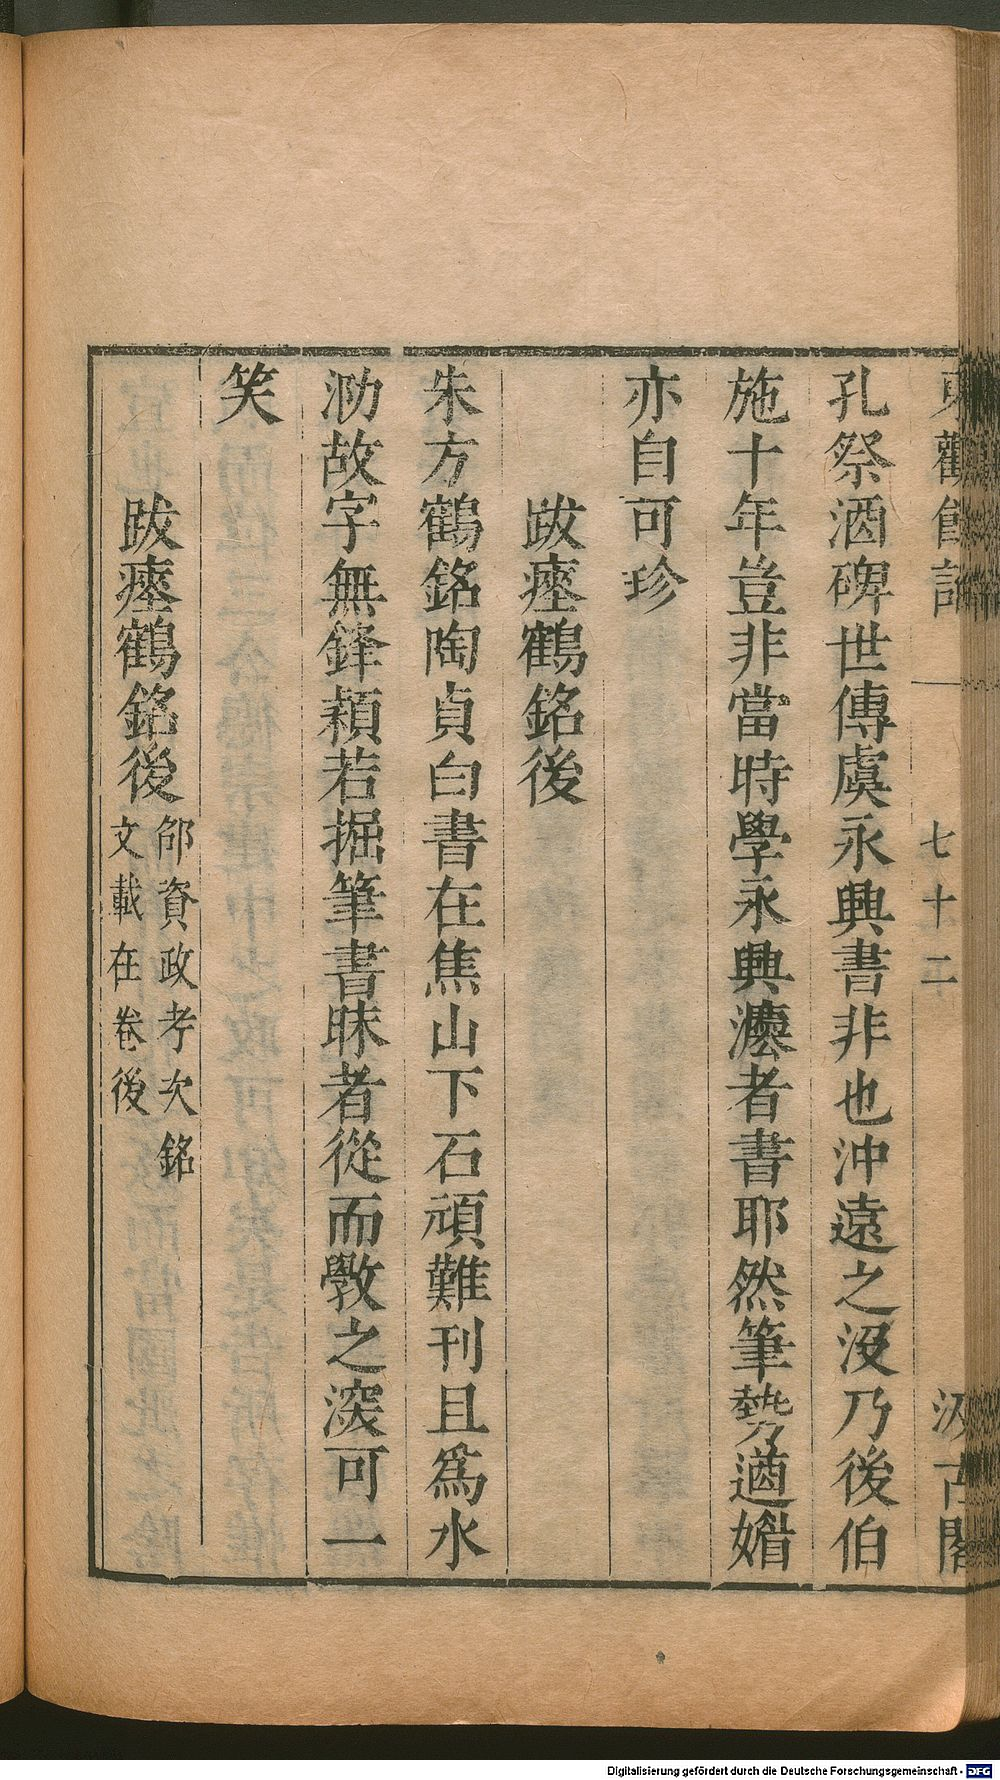 東觀餘論
七十二
汲古閣
孔祭酒碑世傳虞永興書非也沖遠之沒乃後伯
施十年豈非當時學永興灋者書耶然筆勢遒媚
亦自可珍
跋瘞鶴銘後
朱方鶴銘陶貞白書在焦山下石頑難刊且爲水
泐故字無鋒穎若掘筆書昧者從而斆之深可一
笑
跋瘞鶴銘後
邵資政考次銘
文載在卷後
Digitalisierung gefördert durch die Deutsche Forschungsgemeinschaft - DFG